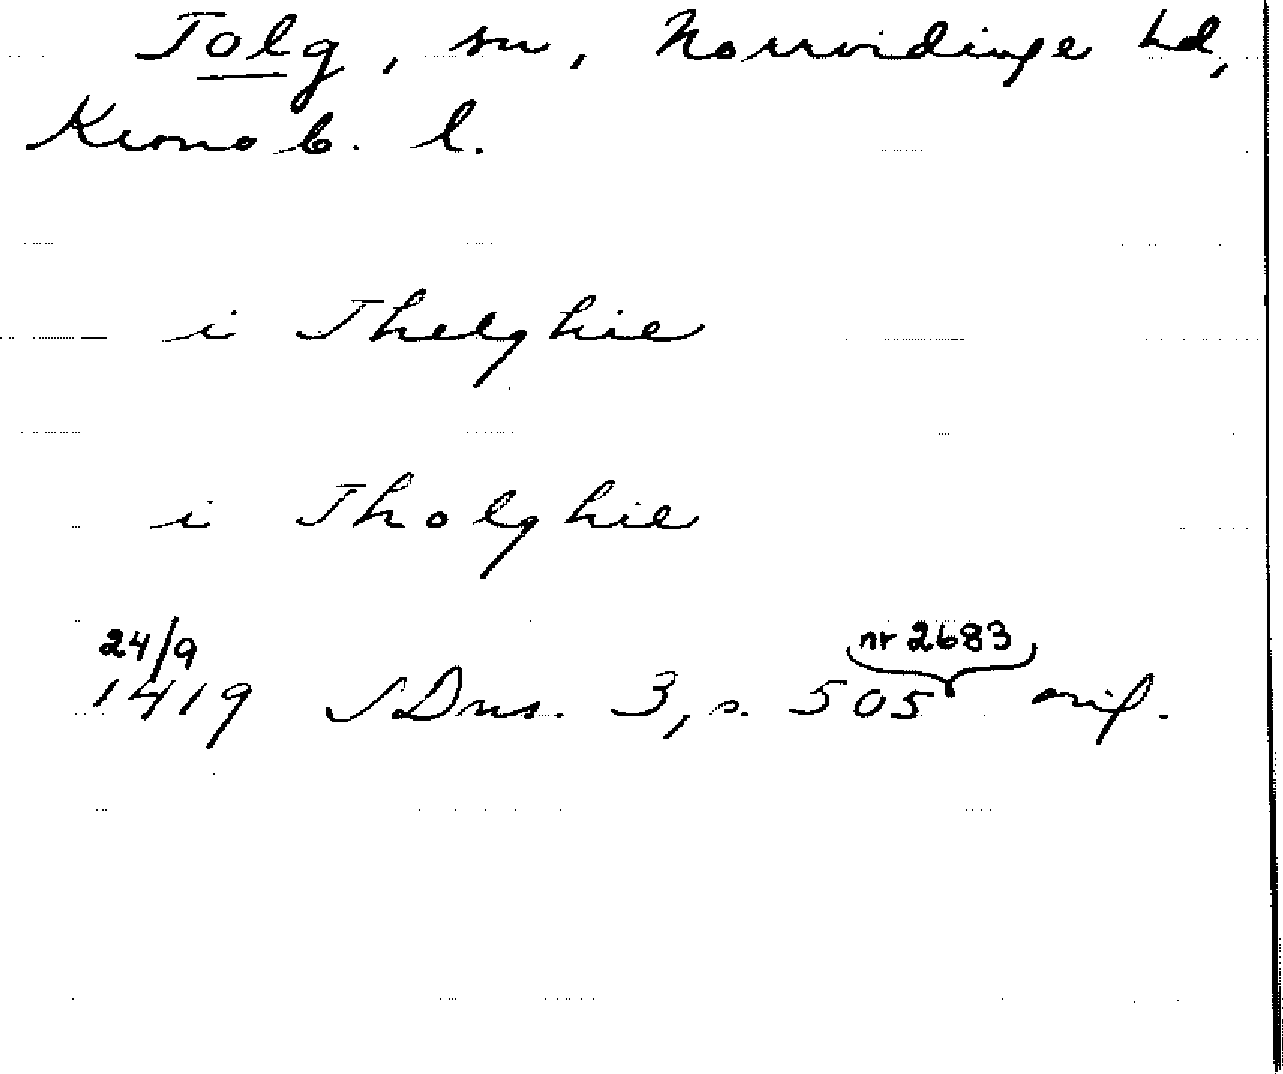 Tolg, sn, Norrvidinge hd,
Kronob. l.
i Thelghie
i Tholghie
24/9 nr 2683
1419 SDns. 3, s. 505 orig.